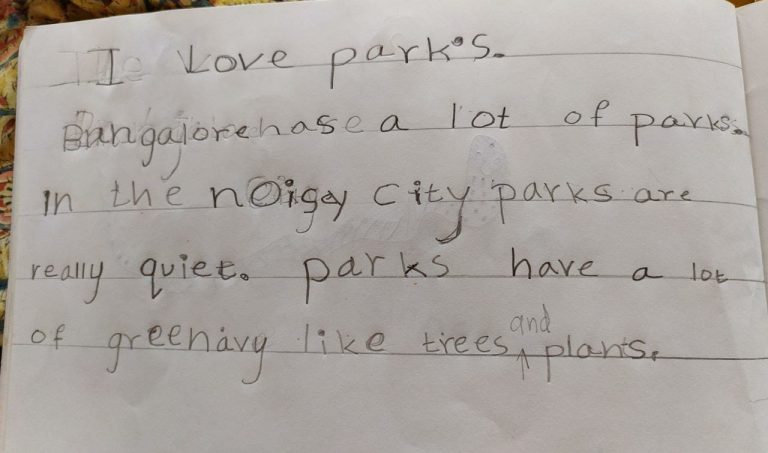 I Love park's.
Bangajore hase a lot of parks.
In the noigy city parks are
really quiet. parks have a lot
of greenavy like trees and plants.